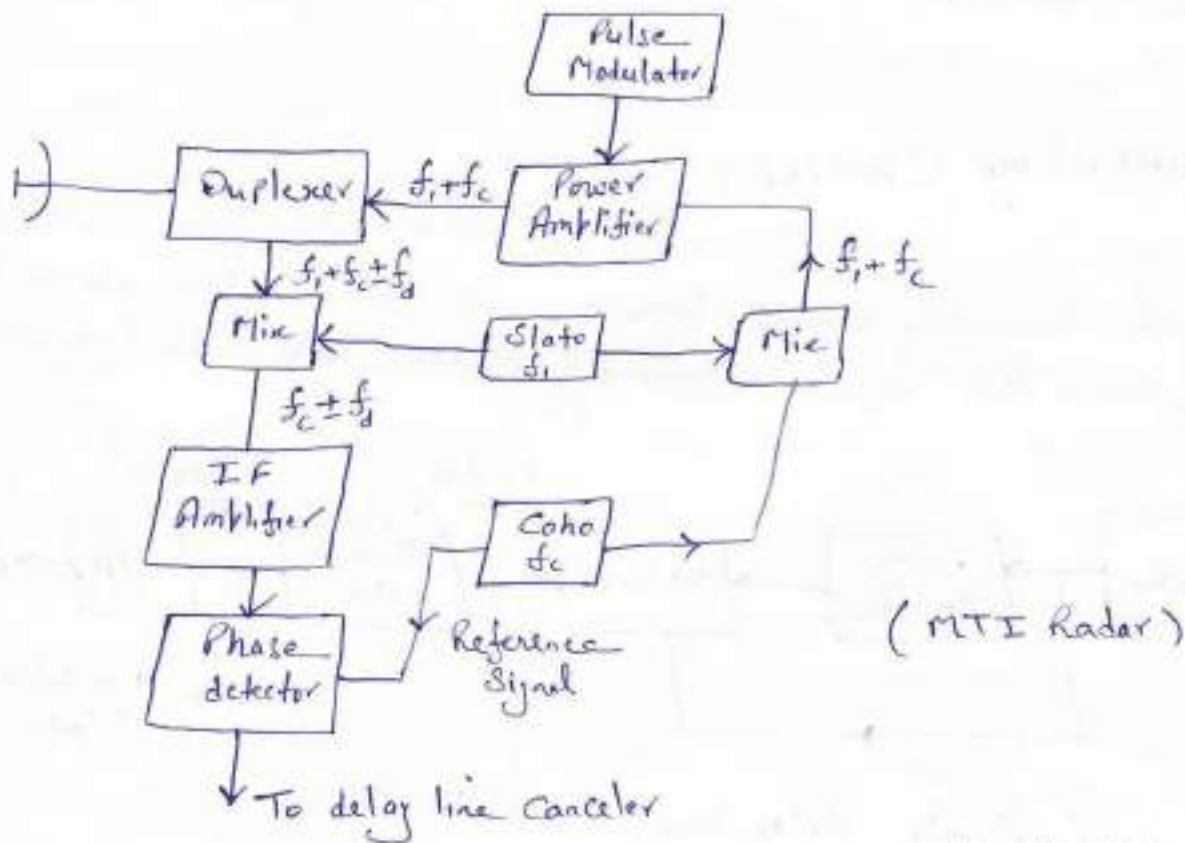 Pulse
Modulator
Duplexer
f₁+f_c
Power
Amplifier
f₁+f_c±f_d
f₁+f_c
Mix
Slato
f₁
Mix
f_c±f_d
IF
Amplifier
Coho
f_c
Phase
detector
Reference
Signal
(MTI Radar)
To delay line Canceler